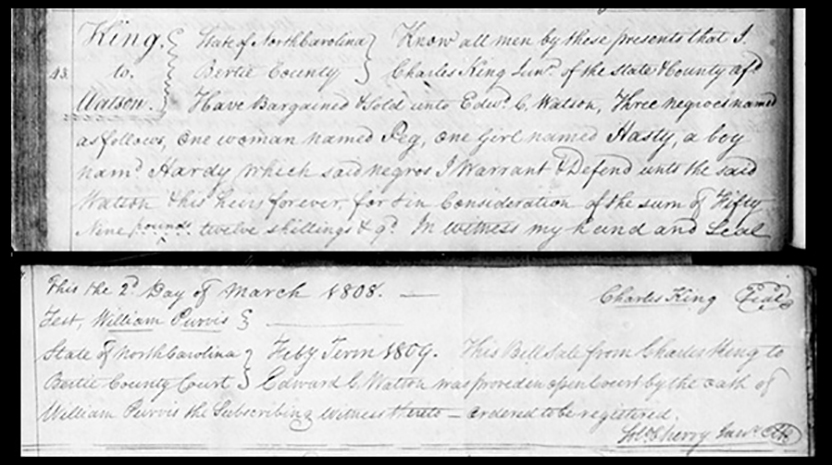 King. State of North Carolina Know all men by these presents that I,
43. to. Bertie County Charles King Junr. of the State & County afd
Watson. Have Bargained & Sold unto Edwd. C. Watson, Three negroes named
as follows, one woman named Peg, one Girl named Hasty, a boy
namd Hardy which said negros I Warrant & Defend unto the said
Watson & his heirs forever, for & in Consideration of the sum of Fifty
Nine pounds twelve shillings & 9d. In witness my hand and Seal
this the 2d Day of March 1808. — Charles King Seal
Test, William Purvis
State of North Carolina Feby Term 1809. This Bill Sale from Charles King to
Bertie County Court Edward C. Watson was proved in open Court by the oath of
William Purvis the Subscribing witness thereto — ordered to be registered.
Sol. Cherry Clk